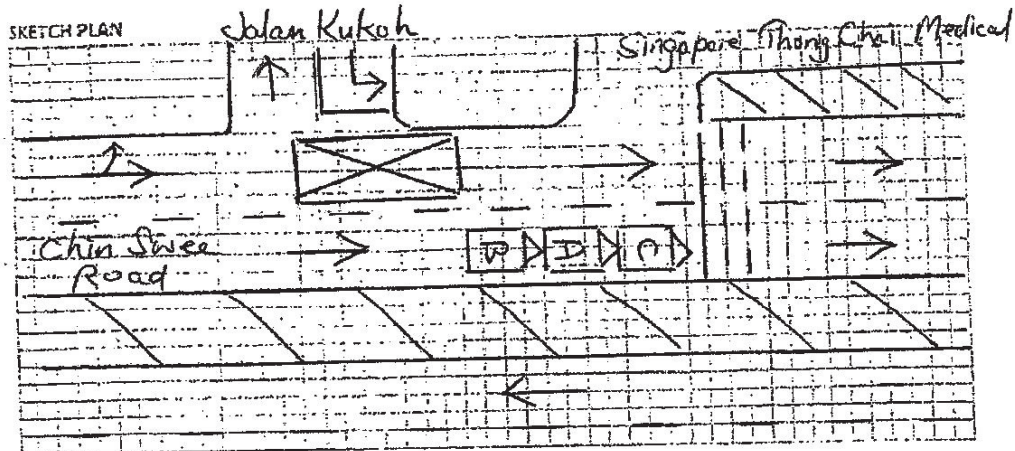 SKETCH PLAN
Jalan Kukoh
Singapore Thong Chai Medical
Chin Swee
Road
B C